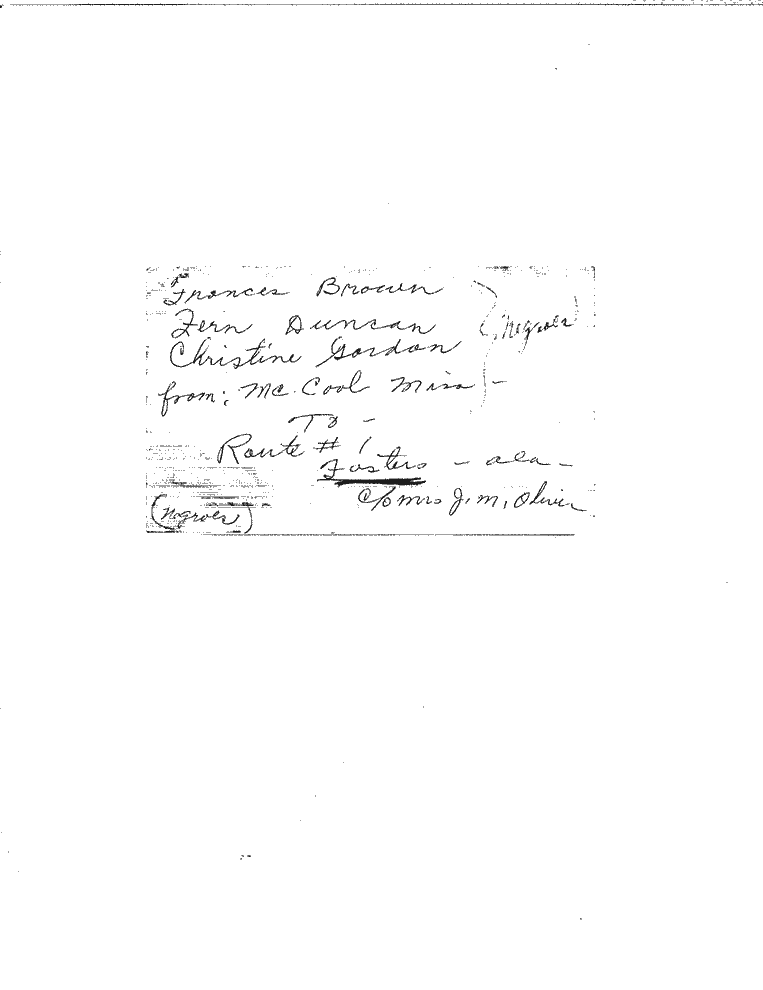 Frances Brown
Fern Duncan (Negroes)
Christine Gordon
from: Mc. Cool Miss -
To -
Route # 1
Fosters - ala -
c/o mrs J. M, Oliver
(Negroes)